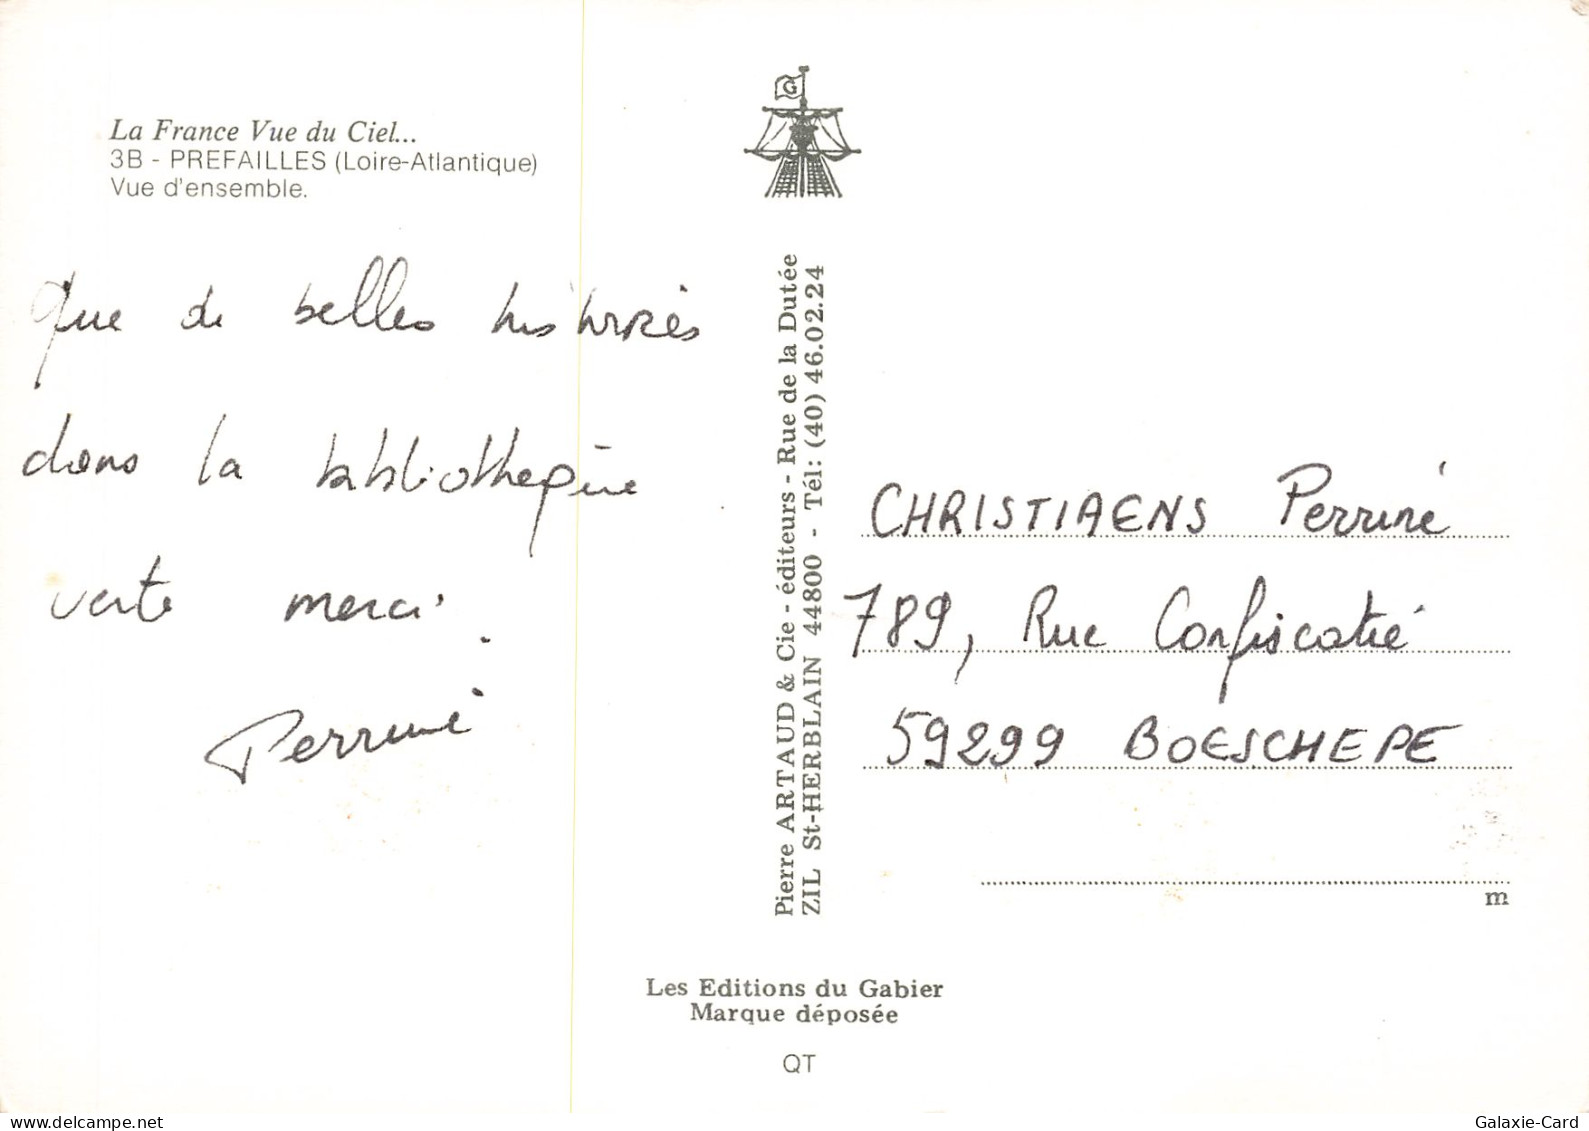 La France Vue du Ciel...
3B - PREFAILLES (Loire-Atlantique)
Vue d'ensemble.
Que de belles histoires
dans la bibliothèque
verte merci.
Perrine
G
Pierre ARTAUD & Cie - éditeurs - Rue de la Dutée
ZIL St-HERBLAIN 44800 - Tél: (40) 46.02.24
CHRISTIAENS Perrine
789, Rue Confiscatie
59299 BOESCHEPE
m
Les Editions du Gabier
Marque déposée
QT
delcampe.net
Galaxie-Card